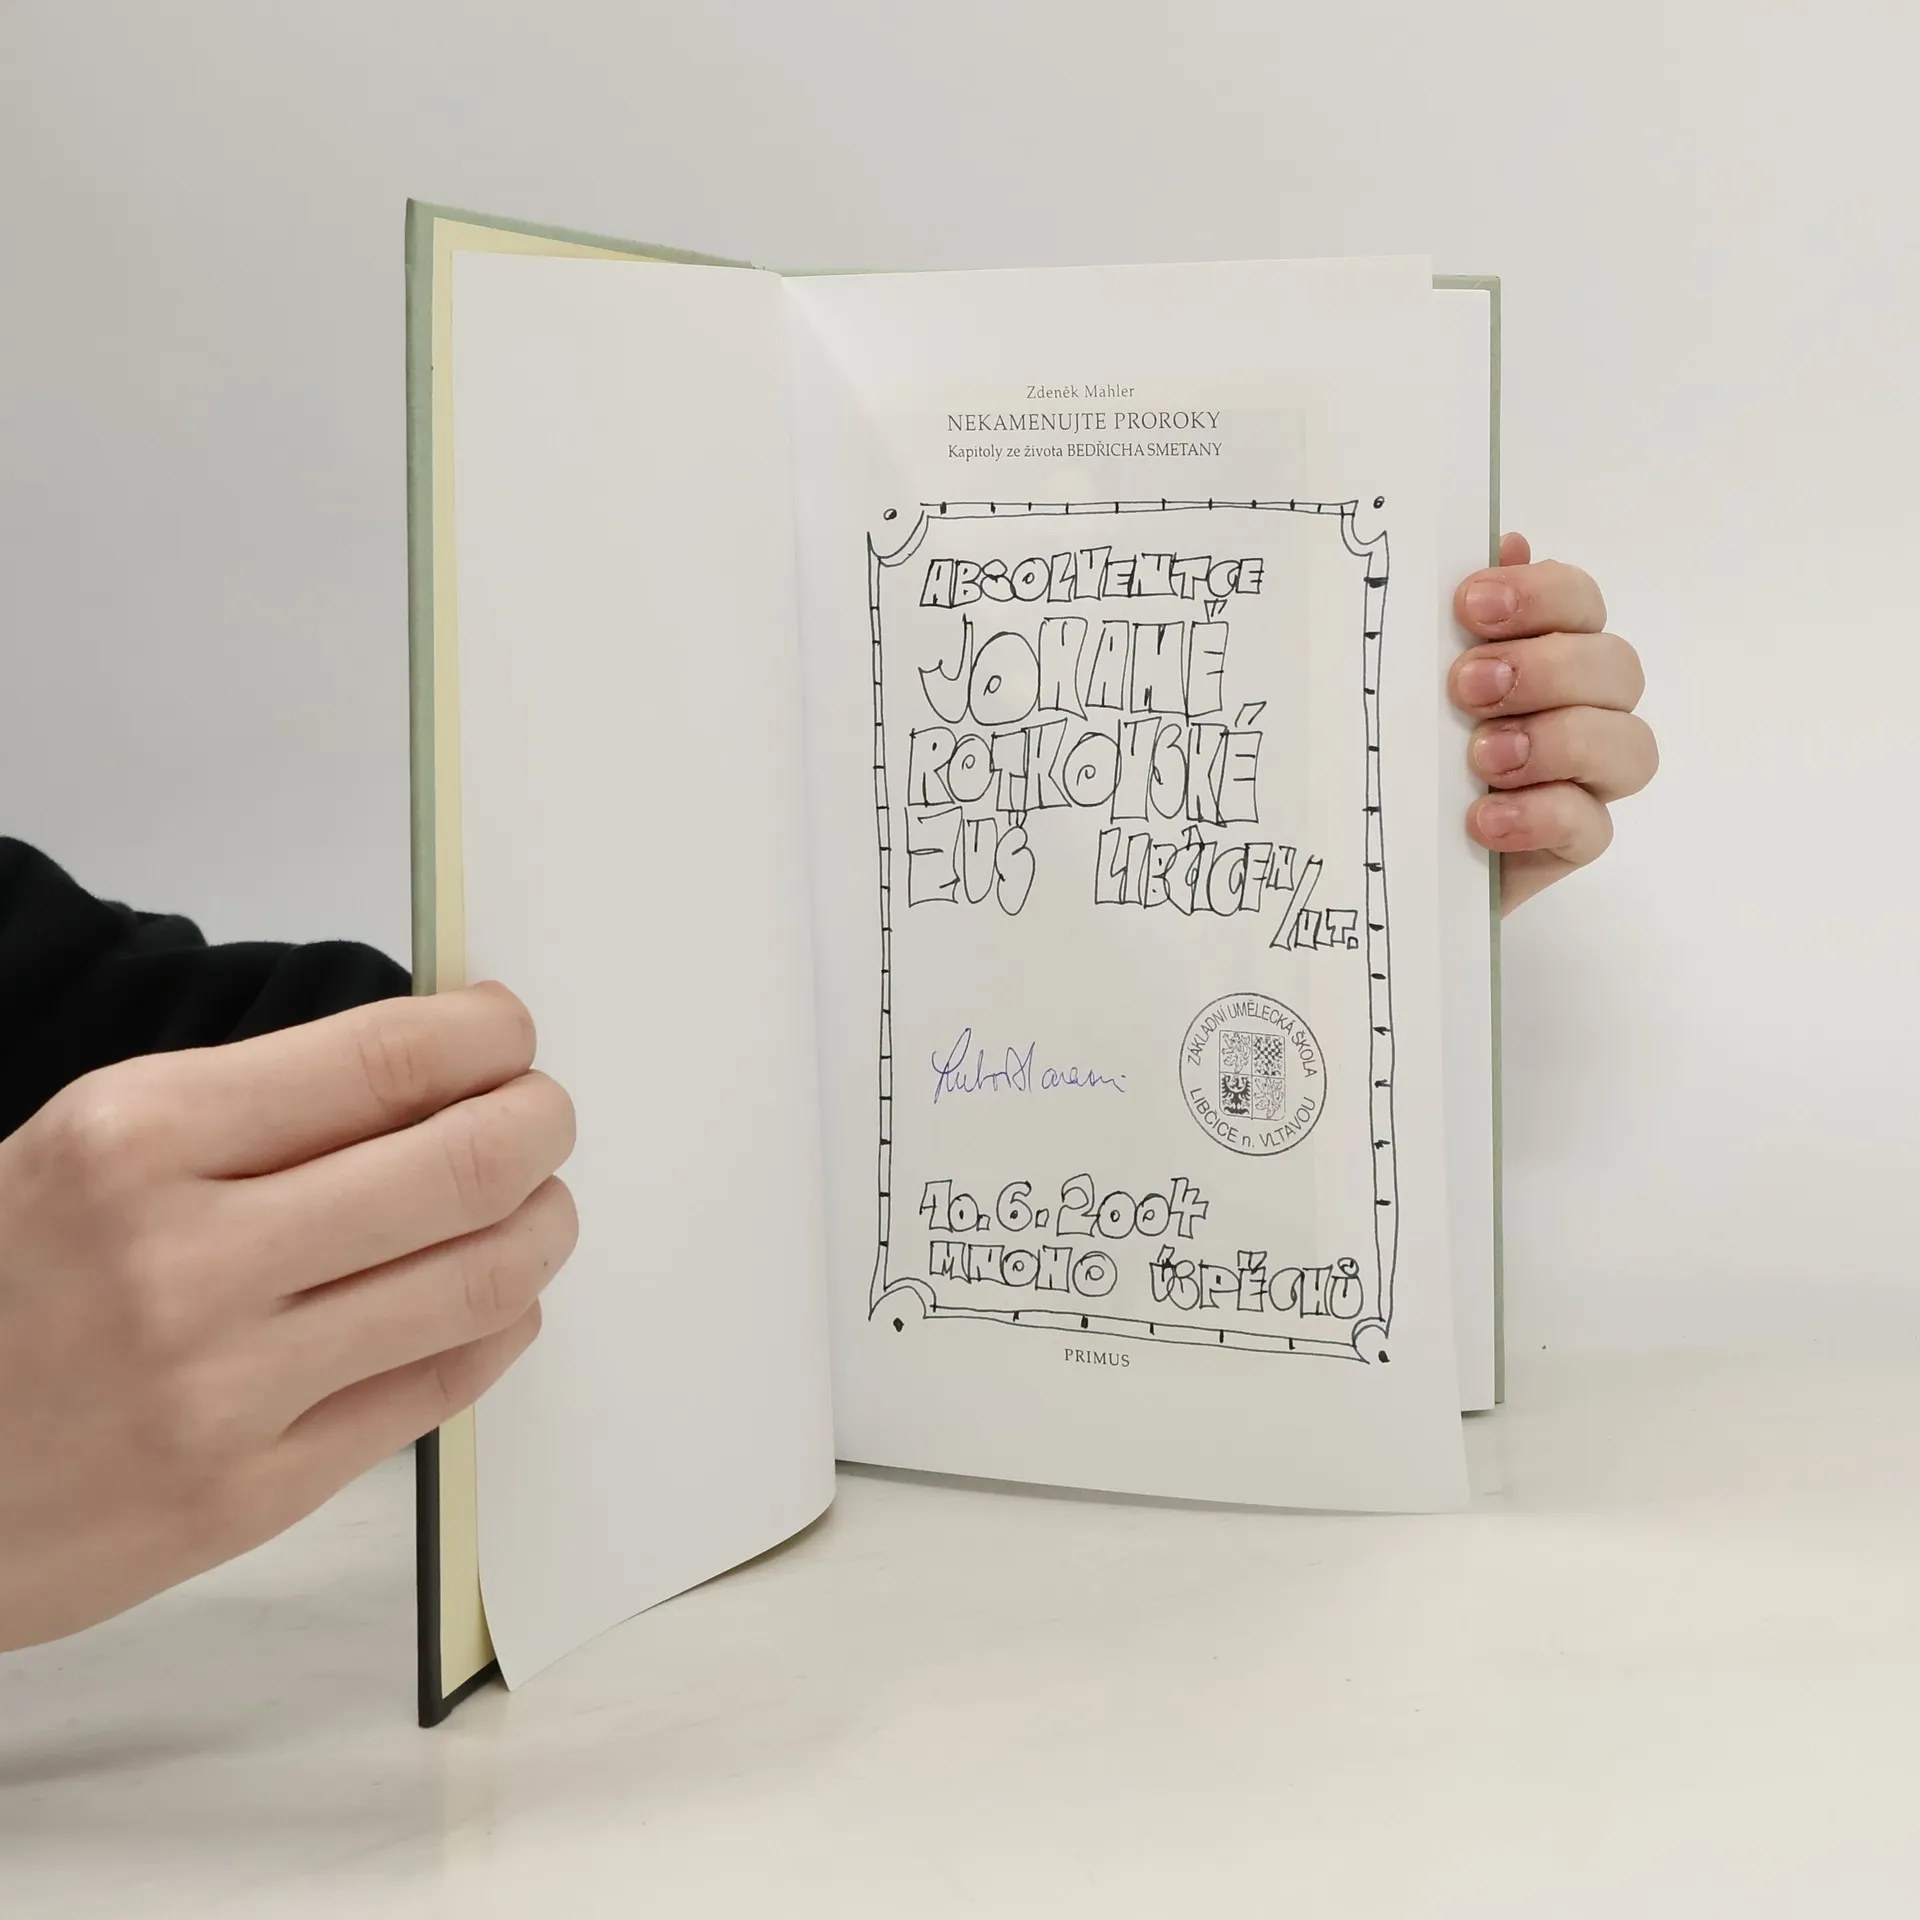 Zdeněk Mahler
NEKAMENUJTE PROROKY
Kapitoly ze života BEDŘICHA SMETANY
ABSOLVENTCE
JOHANĚ
ROTKOVSKÉ
ZUŠ LIBČICE N/VLT.
ZÁKLADNÍ UMĚLECKÁ ŠKOLA
LIBČICE n. VLTAVOU
10.6.2004
MNOHO ÚSPĚCHŮ
PRIMUS